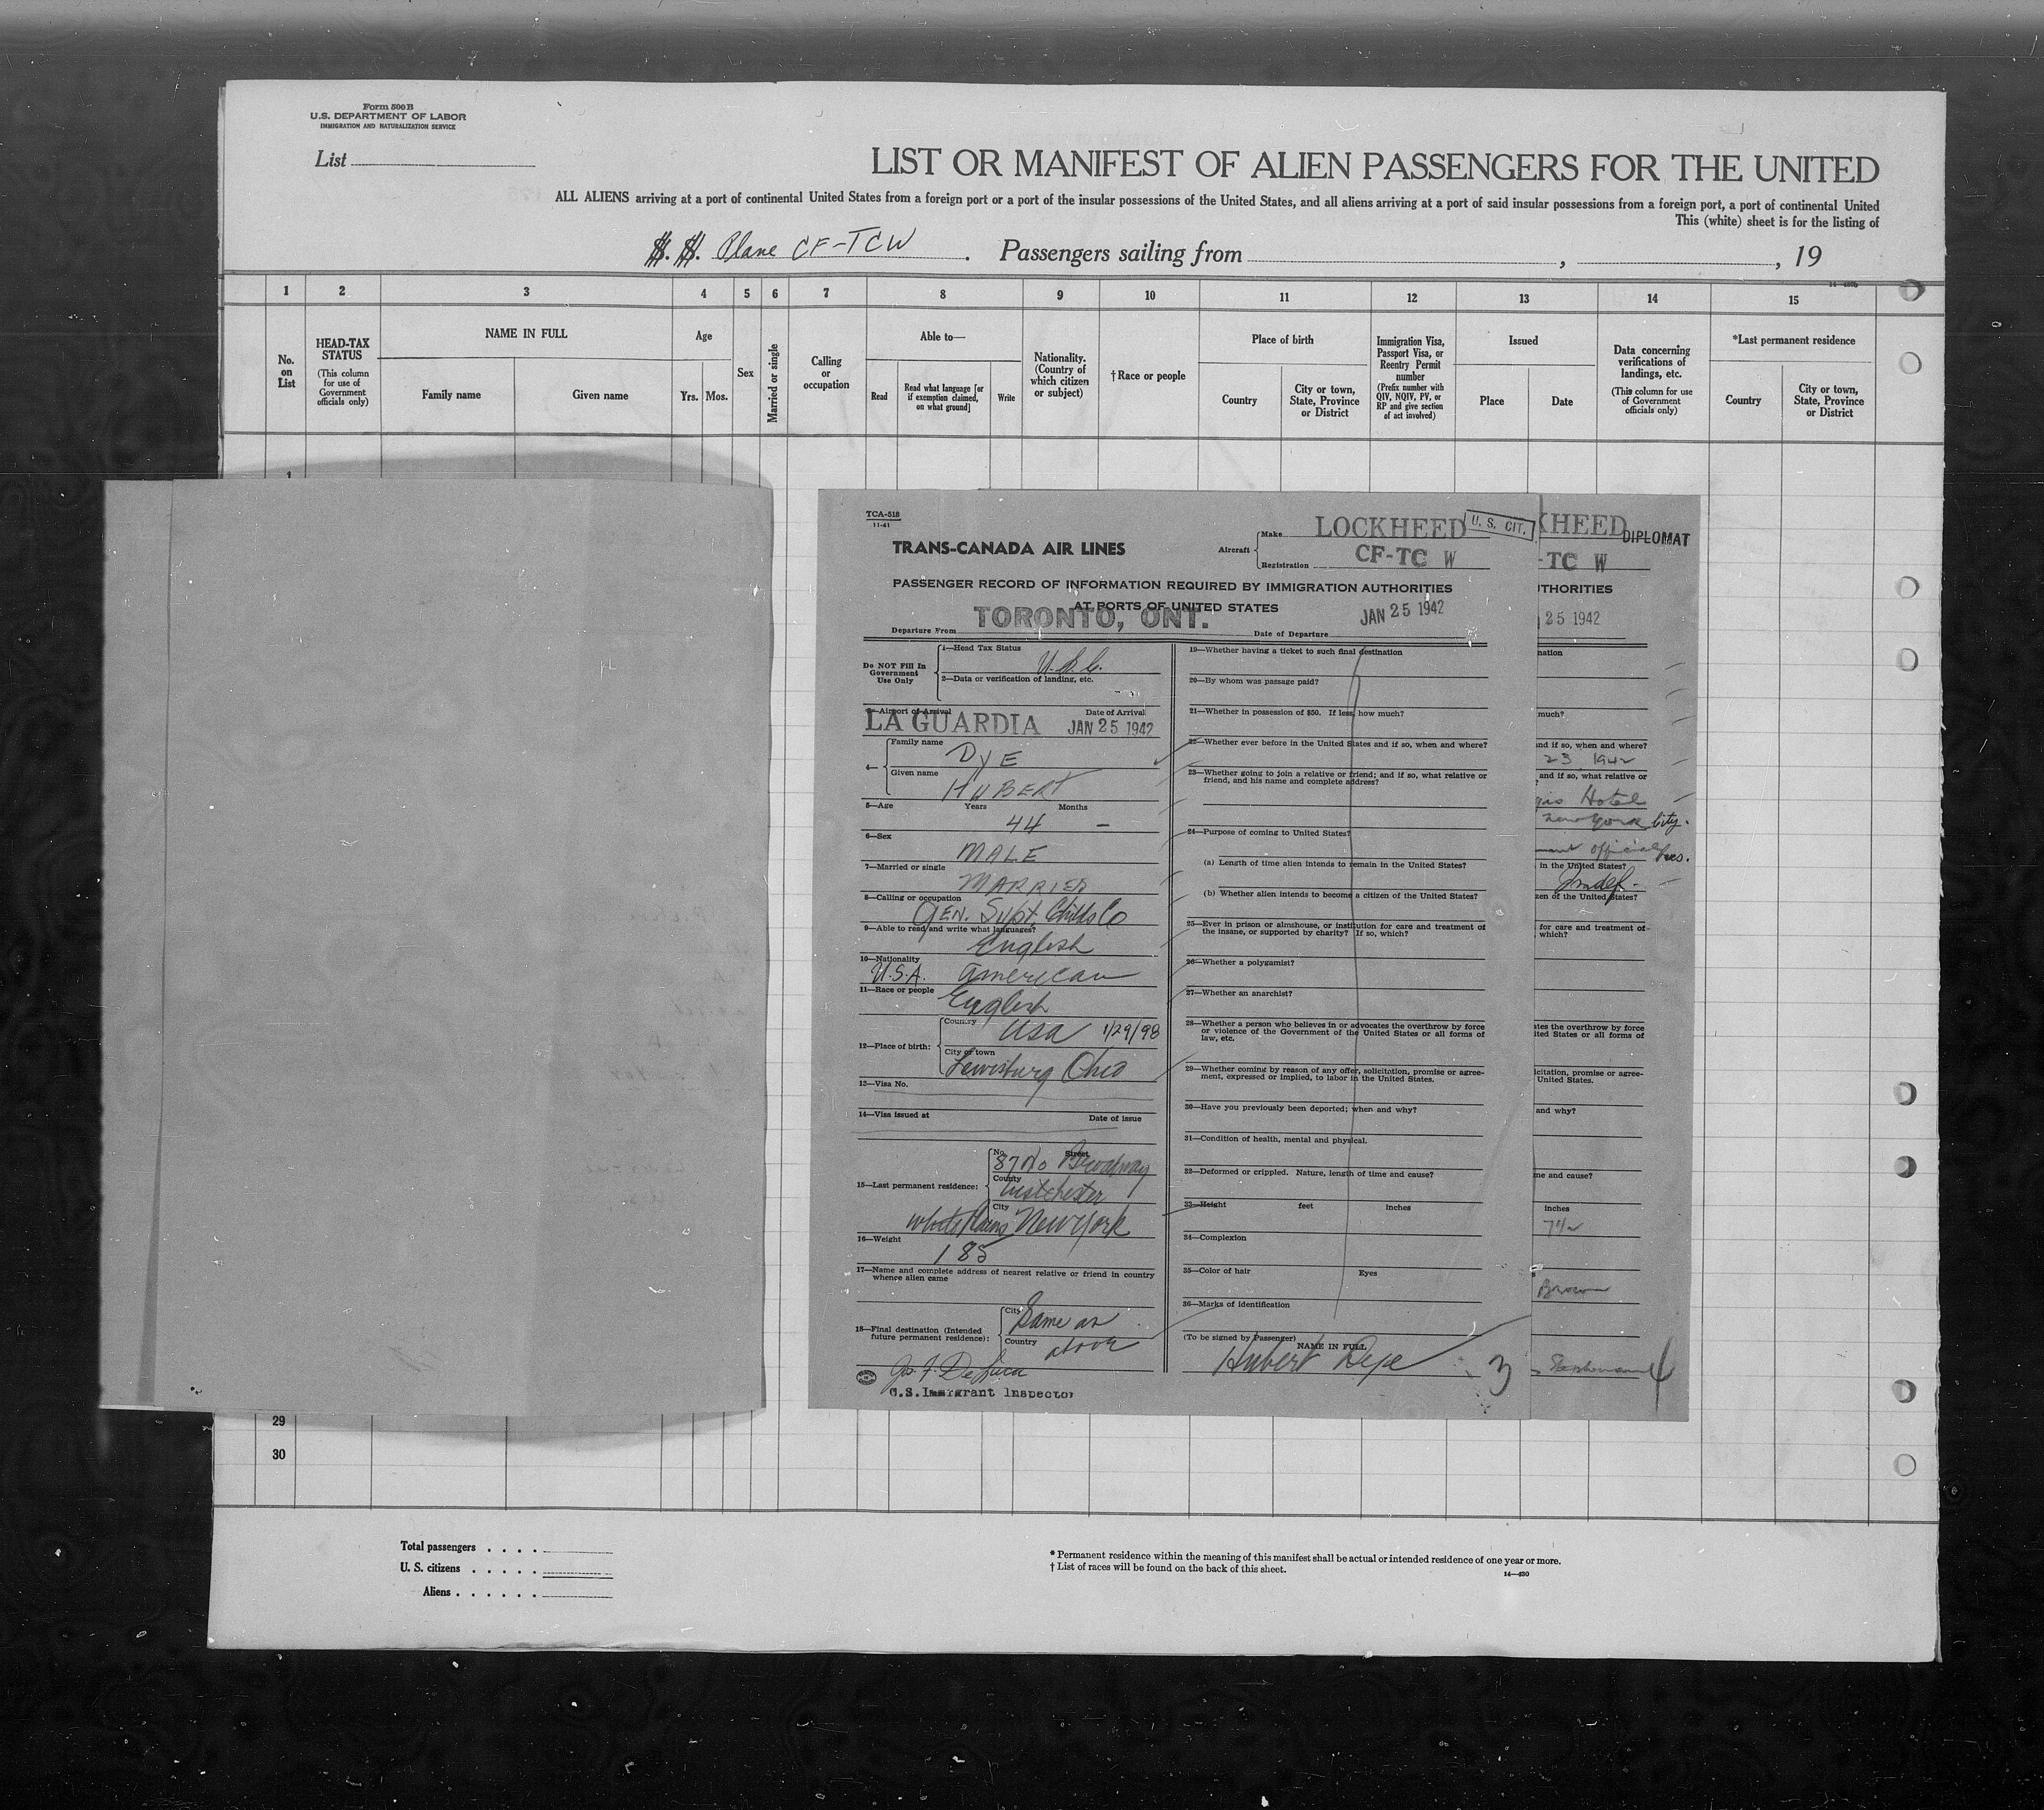 Form 500 B
U.S. DEPARTMENT OF LABOR
IMMIGRATION AND NATURALIZATION SERVICE
List
LIST OR MANIFEST OF ALIEN PASSENGERS FOR THE UNITED
ALL ALIENS arriving at a port of continental United States from a foreign port or a port of the insular possessions of the United States, and all aliens arriving at a port of said insular possessions from a foreign port, a port of continental United
This (white) sheet is for the listing of
S. S. Plane CF-TCW. Passengers sailing from , , 19
1 2 3 4 5 6 7 8 9 10 11 12 13 14 15
No. on List
HEAD-TAX STATUS
(This column for use of Government officials only)
NAME IN FULL
Family name
Given name
Age
Yrs. Mos.
Sex
Married or single
Calling or occupation
Able to—
Read
Read what language [or if exemption claimed, on what ground]
Write
Nationality. (Country of which citizen or subject)
†Race or people
Place of birth
Country
City or town, State, Province or District
Immigration Visa, Passport Visa, or Reentry Permit number
(Prefix number with QIV, NQIV, PV, or RP and give section of act involved)
Issued
Place
Date
Data concerning verifications of landings, etc.
(This column for use of Government officials only)
*Last permanent residence
Country
City or town, State, Province or District
1
TCA-518
11-41
TRANS-CANADA AIR LINES
Aircraft
Make LOCKHEED
U. S. CIT.
Registration CF-TC W
PASSENGER RECORD OF INFORMATION REQUIRED BY IMMIGRATION AUTHORITIES
AT PORTS OF UNITED STATES
Departure From TORONTO, ONT.
Date of Departure JAN 25 1942
Do NOT Fill In Government Use Only
1—Head Tax Status U.S.C.
2—Data or verification of landing, etc.
3—Airport of Arrival Date of Arrival
LA GUARDIA JAN 25 1942
4—
Family name DYE
Given name HUBERT
5—Age Years Months
44 —
6—Sex
MALE
7—Married or single
MARRIED
8—Calling or occupation
GEN. Supt. Childs Co
9—Able to read and write what languages?
English
10—Nationality
U.S.A. American
11—Race or people
English
12—Place of birth:
Country USA 1/29/98
City or town
Lewisburg Ohio
13—Visa No.
14—Visa issued at Date of issue
15—Last permanent residence:
No. Street
87 No Broadway
County
Westchester
City
White Plains New York
16—Weight
185
17—Name and complete address of nearest relative or friend in country
whence alien came
18—Final destination (Intended
future permanent residence):
City Same as
Country above
Jos. F. DeLuca
U.S. Immigrant Inspector
19—Whether having a ticket to such final destination
20—By whom was passage paid?
21—Whether in possession of $50. If less, how much?
22—Whether ever before in the United States and if so, when and where?
23—Whether going to join a relative or friend; and if so, what relative or
friend, and his name and complete address?
24—Purpose of coming to United States?
(a) Length of time alien intends to remain in the United States?
(b) Whether alien intends to become a citizen of the United States?
25—Ever in prison or almshouse, or institution for care and treatment of
the insane, or supported by charity? If so, which?
26—Whether a polygamist?
27—Whether an anarchist?
28—Whether a person who believes in or advocates the overthrow by force
or violence of the Government of the United States or all forms of
law, etc.
29—Whether coming by reason of any offer, solicitation, promise or agree-
ment, expressed or implied, to labor in the United States.
30—Have you previously been deported; when and why?
31—Condition of health, mental and physical.
32—Deformed or crippled. Nature, length of time and cause?
33—Height feet inches
34—Complexion
35—Color of hair Eyes
36—Marks of identification
(To be signed by Passenger)
NAME IN FULL
Hubert Dye
3
KHEED
DIPLOMAT
-TC W
THORITIES
25 1942
nation
much?
and if so, when and where?
23 1942
and if so, what relative or
Hotel
New York City.
official
in the United States?
Indef.
zen of the United States?
for care and treatment of
which?
ates the overthrow by force
ited States or all forms of
icitation, promise or agree-
United States.
and why?
me and cause?
inches
7½
Brown
4
29
30
Total passengers . . . .
U. S. citizens . . . . .
Aliens . . . . . .
* Permanent residence within the meaning of this manifest shall be actual or intended residence of one year or more.
† List of races will be found on the back of this sheet.
14—430